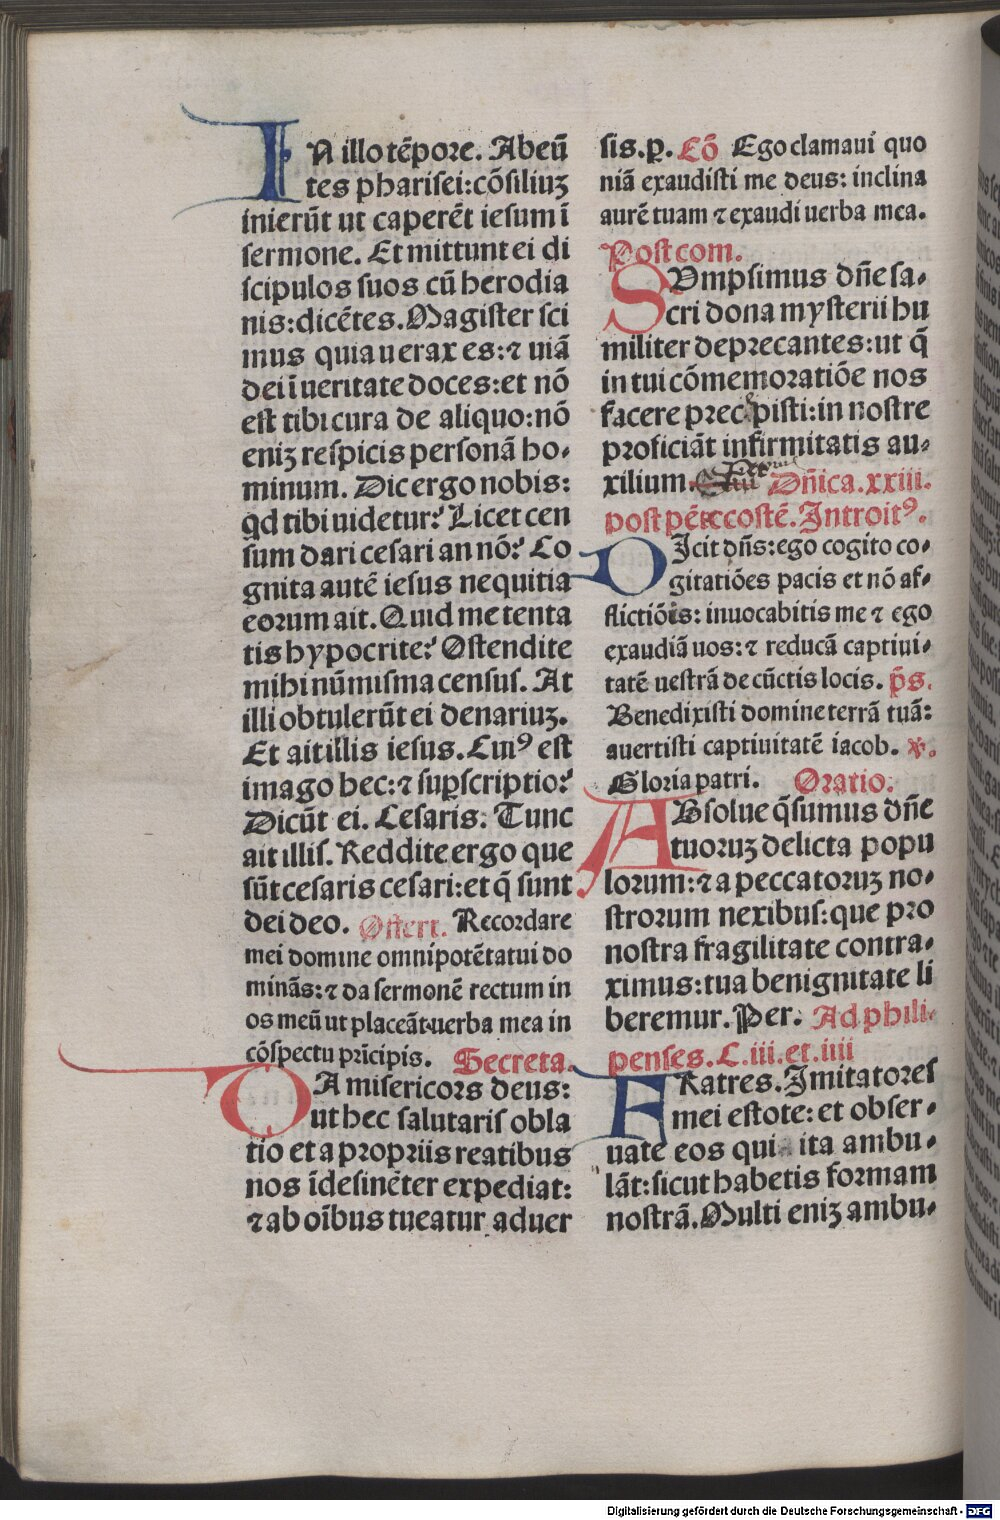 IN illo tēpore. Abeū
tes pharisei: cōsiliuꝫ
inierūt ut caperēt iesum ī
sermone. Et mittunt ei di
scipulos suos cū herodia
nis: dicētes. Magister sci
mus quia uerax es: ⁊ uiā
dei ī ueritate doces: et nō
est tibi cura de aliquo: nō
eniꝫ respicis personā ho⸗
minum. Dic ergo nobis:
qd tibi uidetur? Licet cen
sum dari cesari an nō? Co
gnita autē iesus nequitia
eorum ait. Quid me tenta
tis hypocrite? Ostendite
mihi nūmisma census. At
illi obtulerūt ei denariuꝫ.
Et ait illis iesus. Cuiꝰ est
imago hec: ⁊ suꝑscriptio?
Dicūt ei. Cesaris. Tunc
ait illis. Reddite ergo que
sūt cesaris cesari: et q̄ sunt
dei deo. Offert. Recordare
mei domine omnipotētatui do
minās: ⁊ da sermonē rectum in
os meū ut placeāt uerba mea in
cōspectu prīcipis. Secreta.
DA misericors deus:
ut hec salutaris obla
tio et a propriis reatibus
nos īdesinēter expediat:
⁊ ab oībus tueatur aduer
sis. p. Cō Ego clamaui quo
niā exaudisti me deus: inclina
aurē tuam ⁊ exaudi uerba mea.
Post com.
SUmpsimus dn̄e sa⸗
cri dona mysterii hu
militer deprecantes: ut q̄
in tui cōmemoratiōe nos
facere precepisti: in nostre
proficiāt infirmitatis au⸗
xilium. Dn̄ica. xxiii.
post pētecostē. Introitꝰ.
DIcit dn̄s: ego cogito co⸗
gitatiōes pacis et nō af⸗
flictiōis: inuocabitis me ⁊ ego
exaudiā uos: ⁊ reducā captiui⸗
tatē uestrā de cūctis locis. p̄s.
Benedixisti domine terrā tuā:
auertisti captiuitatē iacob. ℣.
Gloria patri. Oratio.
ABsolue q̄sumus dn̄e
tuoruꝫ delicta popu
lorum: ⁊ a peccatoruꝫ no⸗
strorum nexibus: que pro
nostra fragilitate contra⸗
ximus: tua benignitate li
beremur. Per. Ad phili⸗
penses. C. iii. et. iiii
FRatres. Imitatores
mei estote: et obser⸗
uate eos qui ita ambu⸗
lāt: sicut habetis formam
nostrā. Multi eniꝫ ambu⸗
Digitalisierung gefördert durch die Deutsche Forschungsgemeinschaft - DFG